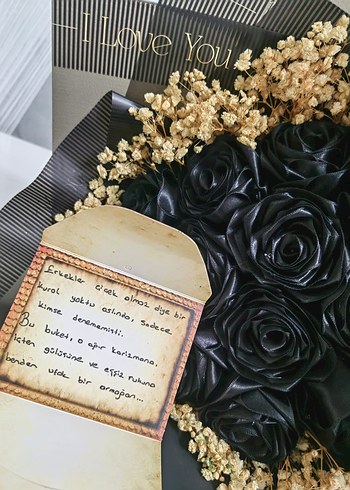 I Love You
Erkekler çiçek almaz diye bir
kural yoktu aslında, sadece
kimse denememişti.
Bu buket, o ağır karizmana,
içten gülüşüne ve eşsiz ruhuna
benden ufak bir armağan...